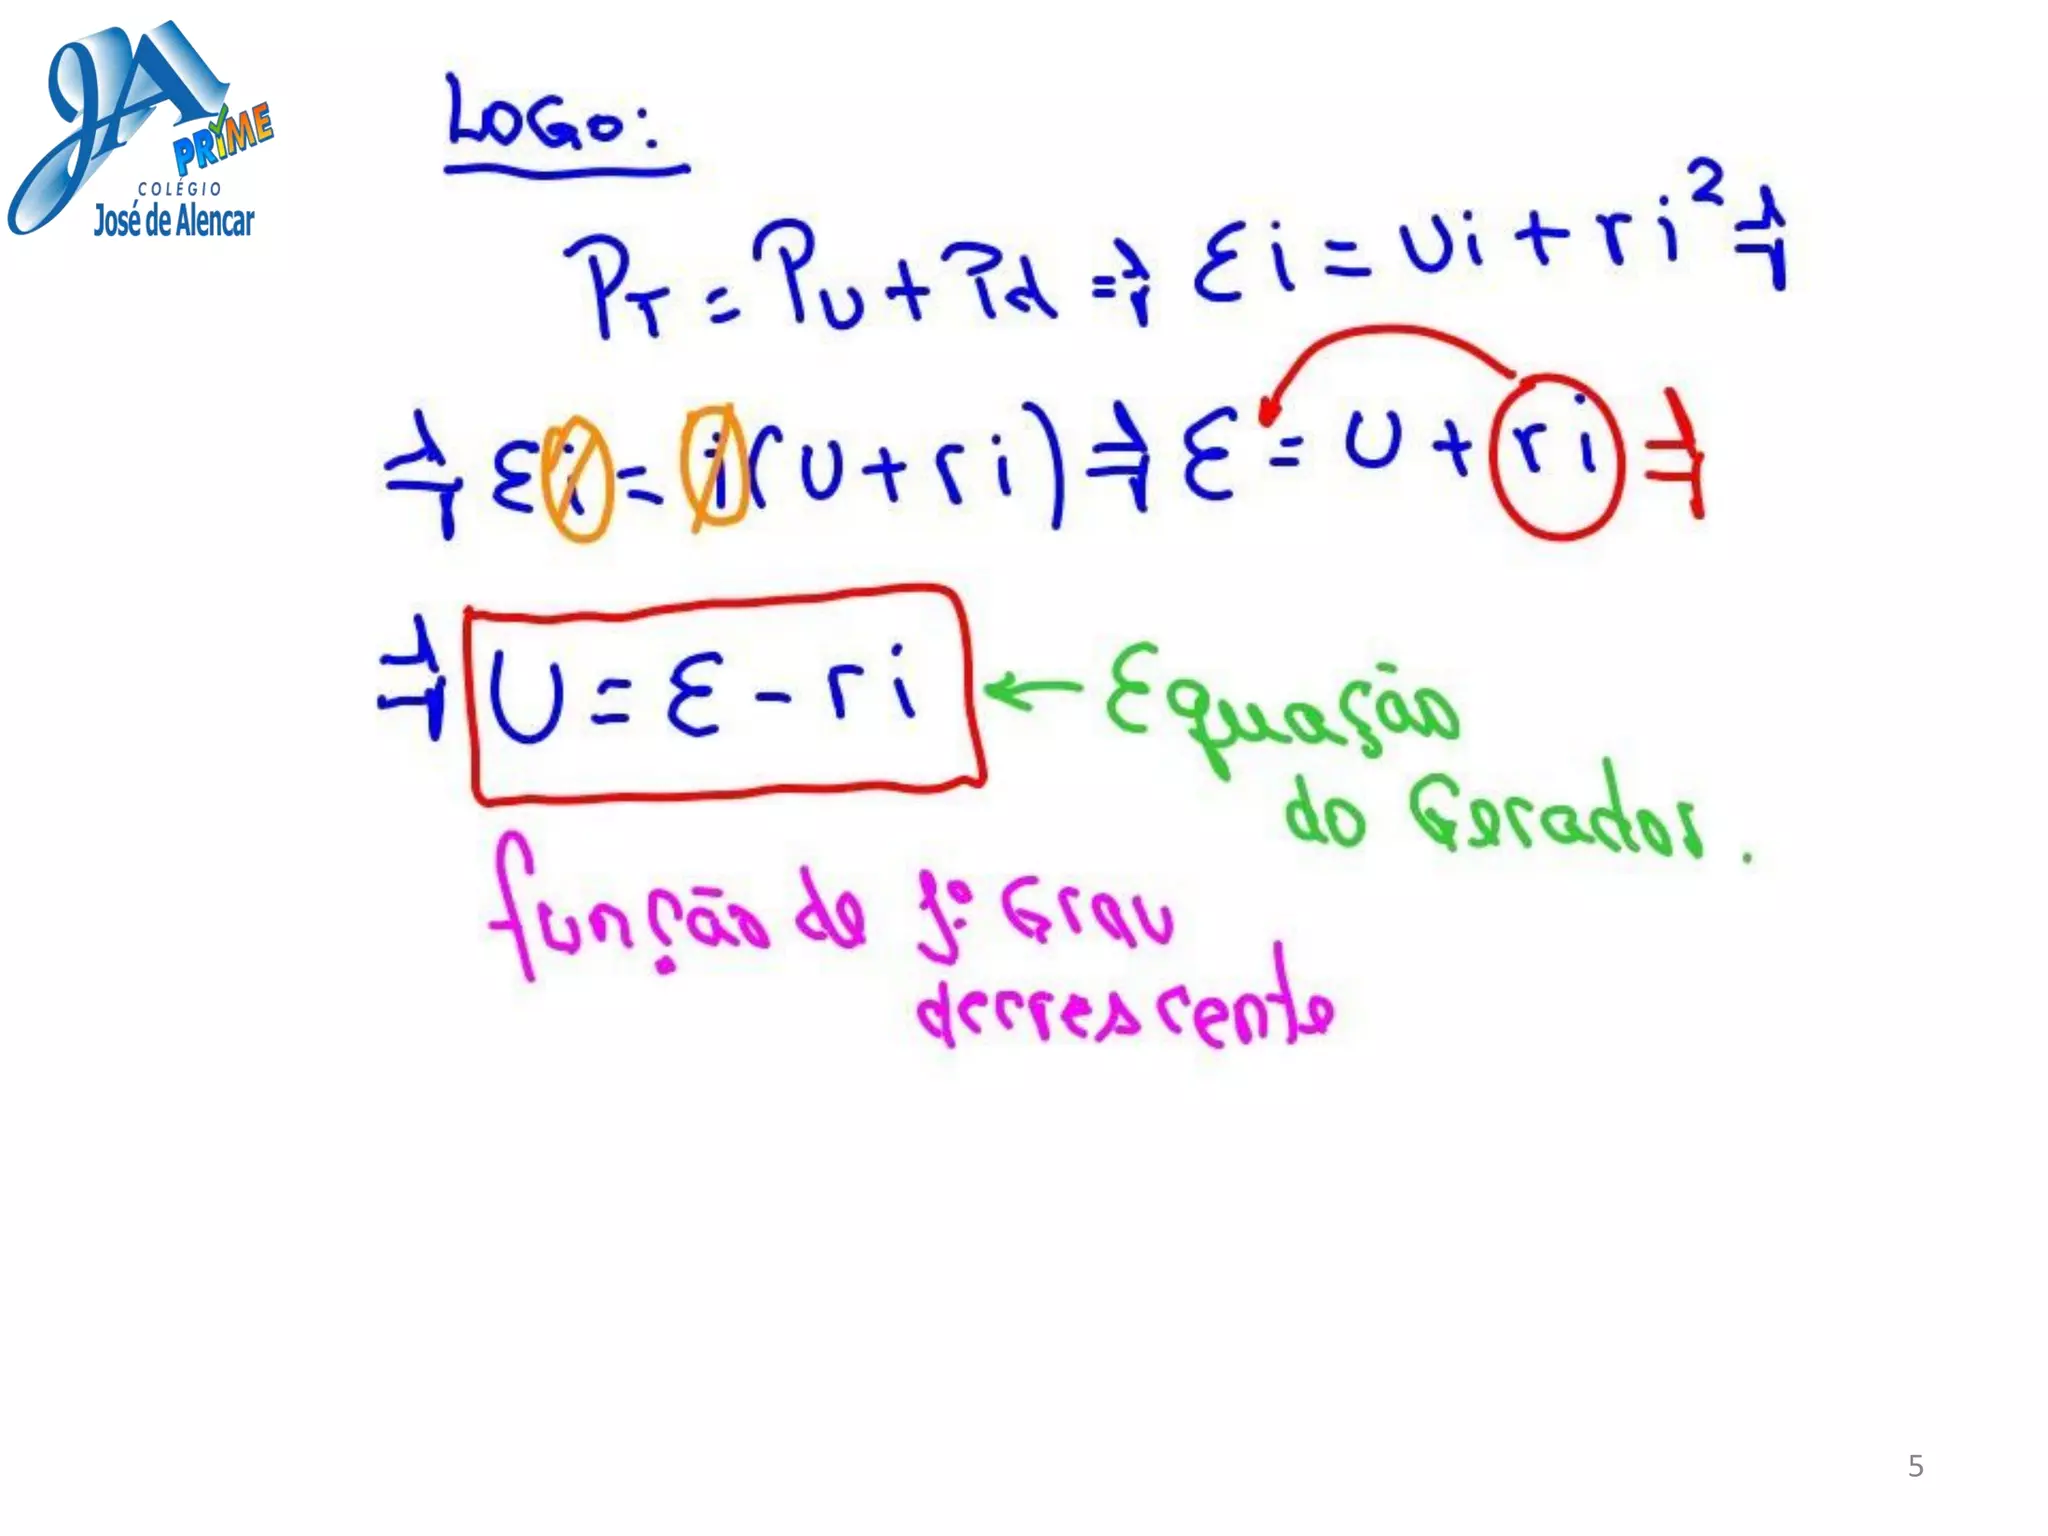 JA
PRYME
COLÉGIO
José de Alencar
LOGO:
PT = PU + Pd ⇒ Ɛi = Ui + ri² ⇒
⇒ Ɛi = i(U + ri) ⇒ Ɛ = U + ri ⇒
⇒ U = Ɛ - ri ← Equação
do Gerador.
função de 1º Grau
decrescente
5